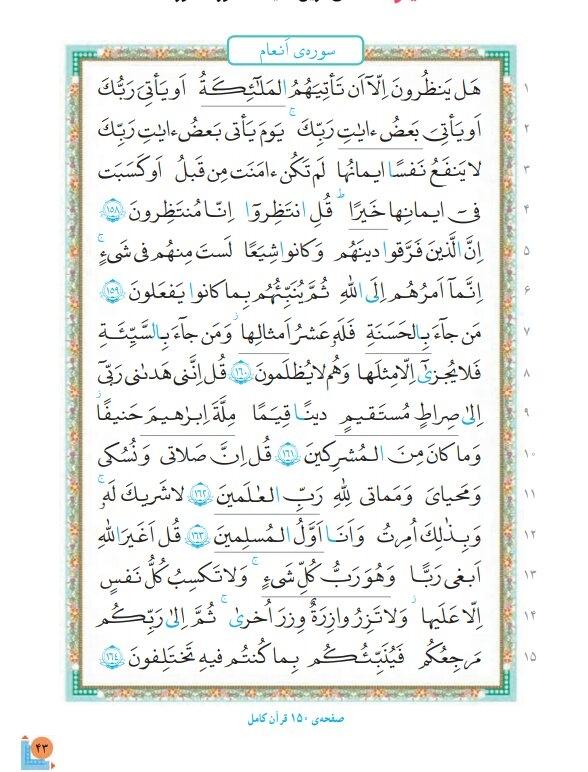 سوره‌ی اَنعام
هَل یَنظُرونَ اِلّا اَن تَأتِیَهُمُ المَلٰٓئِکَةُ اَو یَأتِیَ رَبُّکَ ۱
اَو یَأتِیَ بَعضُ ءایٰتِ رَبِّکَ ۚ یَومَ یَأتی بَعضُ ءایٰتِ رَبِّکَ ۲
لا یَنفَعُ نَفسًا ایمانُها لَم تَکُن ءامَنَت مِن قَبلُ اَو کَسَبَت ۳
فیٓ ایمانِها خَیرًا ۗ قُلِ انتَظِروٓا اِنّا مُنتَظِرونَ ۱۵۸ ۴
اِنَّ الَّذینَ فَرَّقوا دینَهُم وَ کانوا شِیَعًا لَستَ مِنهُم فی شَیءٍ ۚ ۵
اِنَّمآ اَمرُهُم اِلَی اللّٰهِ ثُمَّ یُنَبِّئُهُم بِما کانوا یَفعَلونَ ۱۵۹ ۶
مَن جآءَ بِالحَسَنَةِ فَلَهٗ عَشرُ اَمثالِها ۖ وَ مَن جآءَ بِالسَّیِّئَةِ ۷
فَلا یُجزیٰٓ اِلّا مِثلَها وَ هُم لا یُظلَمونَ ۱۶۰ قُل اِنَّنی هَدٰنی رَبّیٓ ۸
اِلیٰ صِراطٍ مُستَقیمٍ دینًا قِیَمًا مِلَّةَ اِبرٰهیمَ حَنیفًا ۚ ۹
وَ ما کانَ مِنَ المُشرِکینَ ۱۶۱ قُل اِنَّ صَلاتی وَ نُسُکی ۱۰
وَ مَحیایَ وَ مَماتی لِلّٰهِ رَبِّ العٰلَمینَ ۱۶۲ لا شَریکَ لَهٗ ۖ ۱۱
وَ بِذٰلِکَ اُمِرتُ وَ اَنَا اَوَّلُ المُسلِمینَ ۱۶۳ قُل اَغَیرَ اللّٰهِ ۱۲
اَبغی رَبًّا وَ هُوَ رَبُّ کُلِّ شَیءٍ ۚ وَ لا تَکسِبُ کُلُّ نَفسٍ ۱۳
اِلّا عَلَیها ۚ وَ لا تَزِرُ وازِرَةٌ وِزرَ اُخریٰ ۚ ثُمَّ اِلیٰ رَبِّکُم ۱۴
مَرجِعُکُم فَیُنَبِّئُکُم بِما کُنتُم فیهِ تَختَلِفونَ ۱۶۴ ۱۵
صفحه‌ی ۱۵۰ قرآن کامل
۴۳